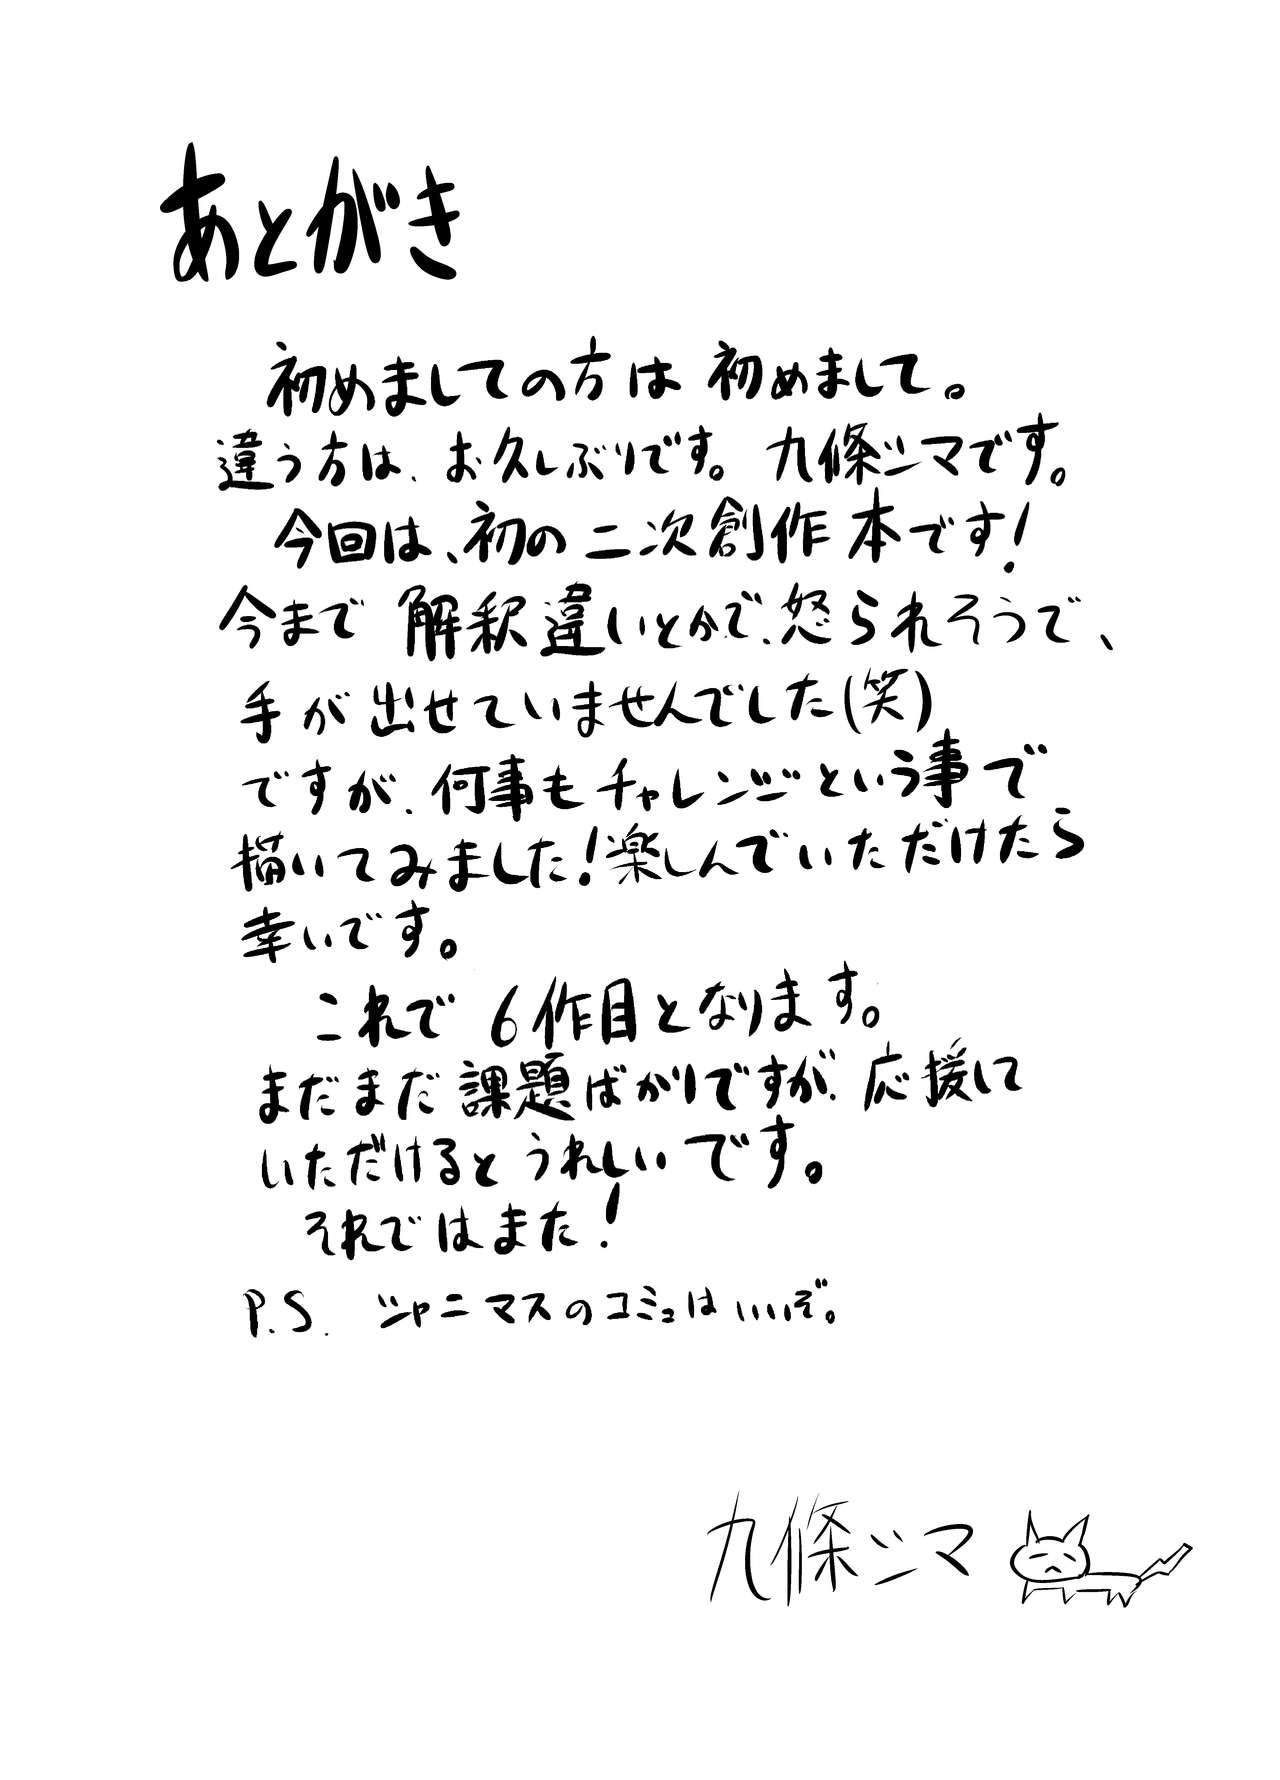 あとがき
初めましての方は初めまして。
違う方は、お久しぶりです。九條シマです。
今回は、初の二次創作本です!
今まで解釈違いとかで、怒られそうで、
手が出せていませんでした(笑)
ですが、何事もチャレンジという事で
描いてみました!楽しんでいただけたら
幸いです。
これで6作目となります。
まだまだ課題ばかりですが、応援して
いただけるとうれしいです。
それではまた!
P.S. シャニマスのコミュはいいぞ。
九條シマ